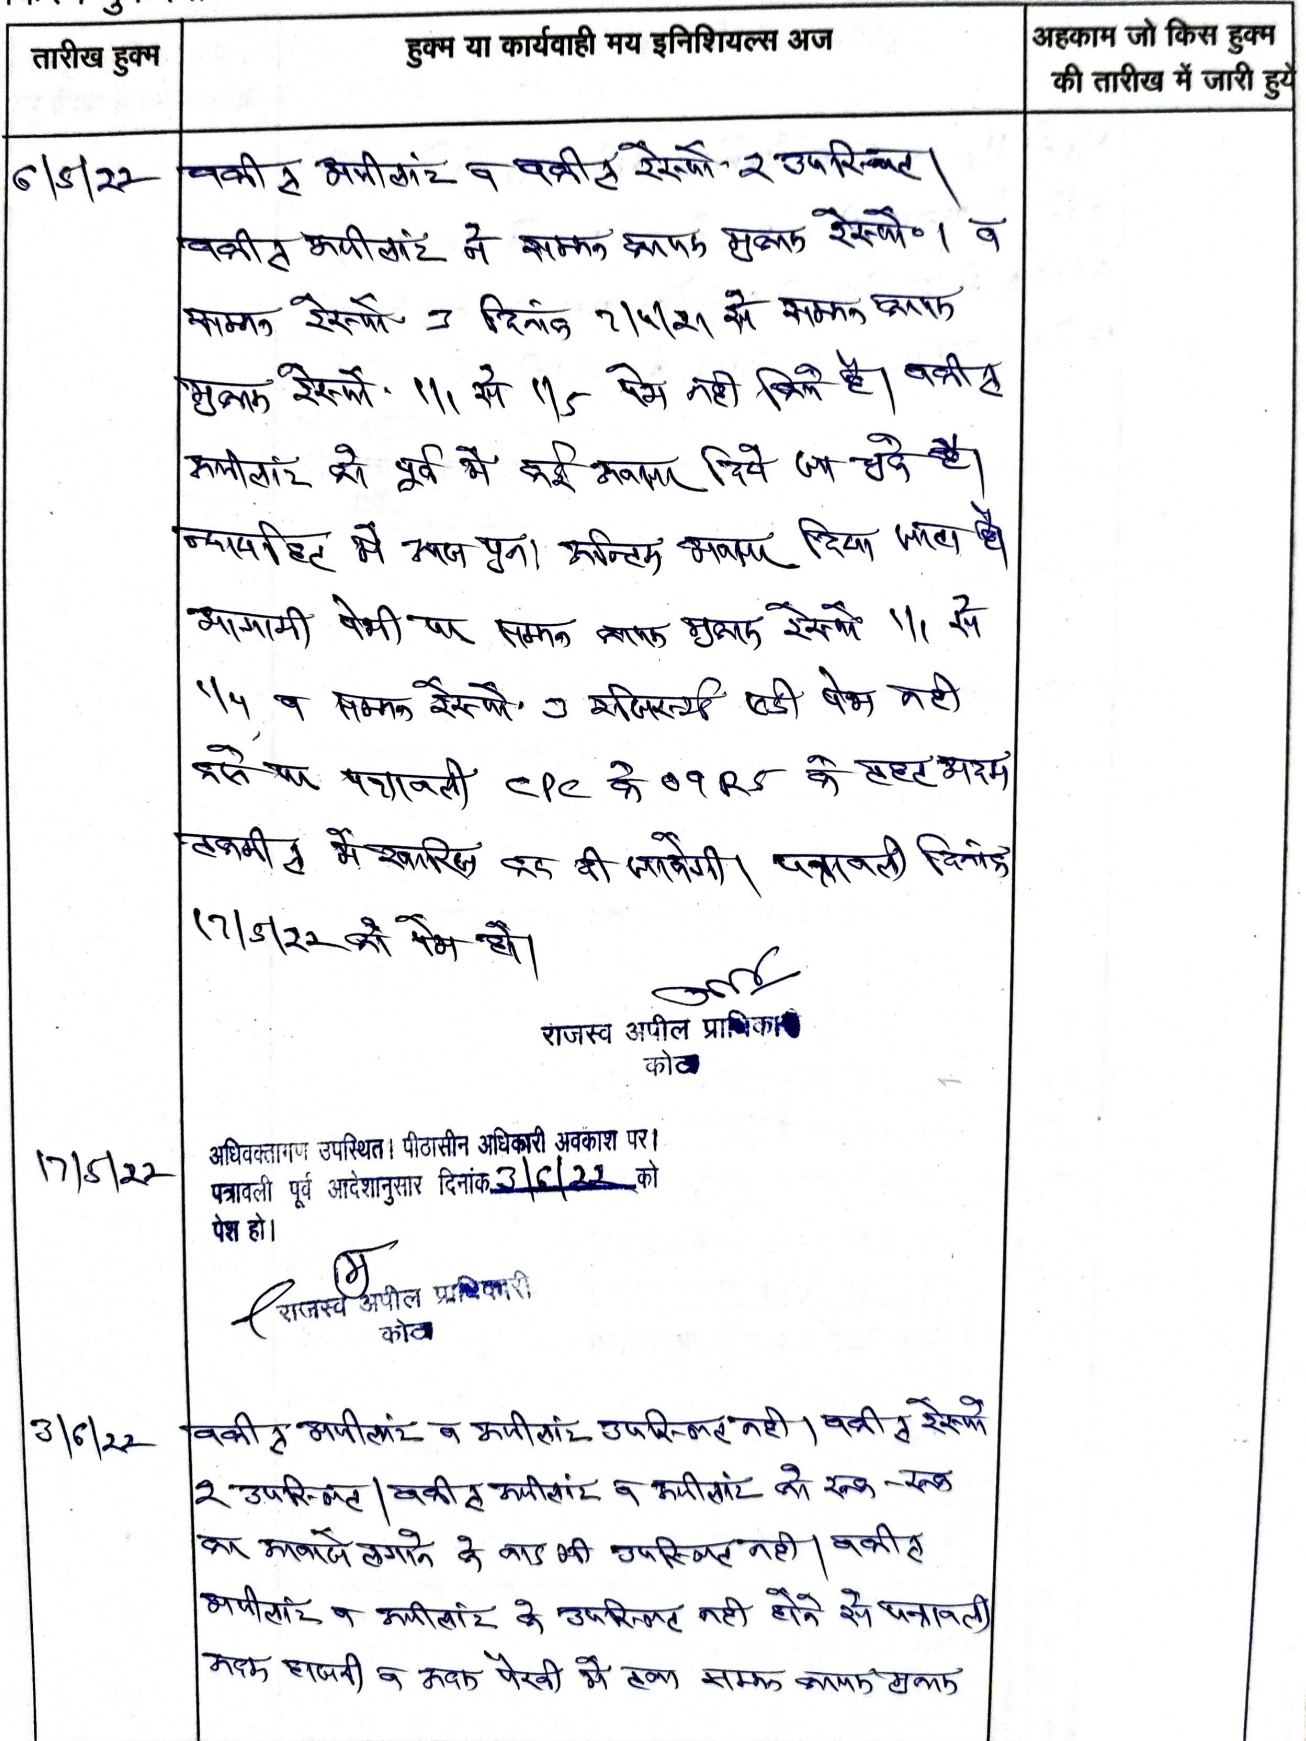 तारीख हुक्म
हुक्म या कार्यवाही मय इनिशियल्स अज
अहकाम जो किस हुक्म
की तारीख में जारी हुये
6/5/22
वकील अपीलांट व वकील रेस्पो. 2 उपस्थित।
वकील अपीलांट ने सम्मन कायम मुकाम रेस्पो. 1 व
सम्मन रेस्पो. 3 दिनांक 7/4/21 से सम्मन कायम
मुकाम रेस्पो. 1/1 से 1/5 पेश नही किये है। वकील
अपीलांट को पूर्व में कई अवसर दिये जा चुके है।
न्यायहित में आज पुनः अन्तिम अवसर दिया जाता है।
आगामी पेशी पर सम्मन कायम मुकाम रेस्पो 1/1 से
1/4 व सम्मन रेस्पो. 3 रजिस्टर्ड एडी पेश नही
करने पर पत्रावली CPC के 09 R5 के तहत अदम
तकमील में खारिज कर दी जावेगी। पत्रावली दिनांक
17/5/22 को पेश हो।
राजस्व अपील प्राधिकारी
कोटा
17/5/22
अधिवक्तागण उपस्थित। पीठासीन अधिकारी अवकाश पर।
पत्रावली पूर्व आदेशानुसार दिनांक 3/6/22 को
पेश हो।
राजस्व अपील प्राधिकारी
कोटा
3/6/22
वकील अपीलांट व अपीलांट उपस्थित नही। वकील रेस्पो
2 उपस्थित। वकील अपीलांट व अपीलांट को रुक-रुक
कर आवाजे लगाने के बाद भी उपस्थित नही। वकील
अपीलांट व अपीलांट के उपस्थित नही होने से पत्रावली
अदम हाजरी व अदम पैरवी में तथा सम्मन कायम मुकाम